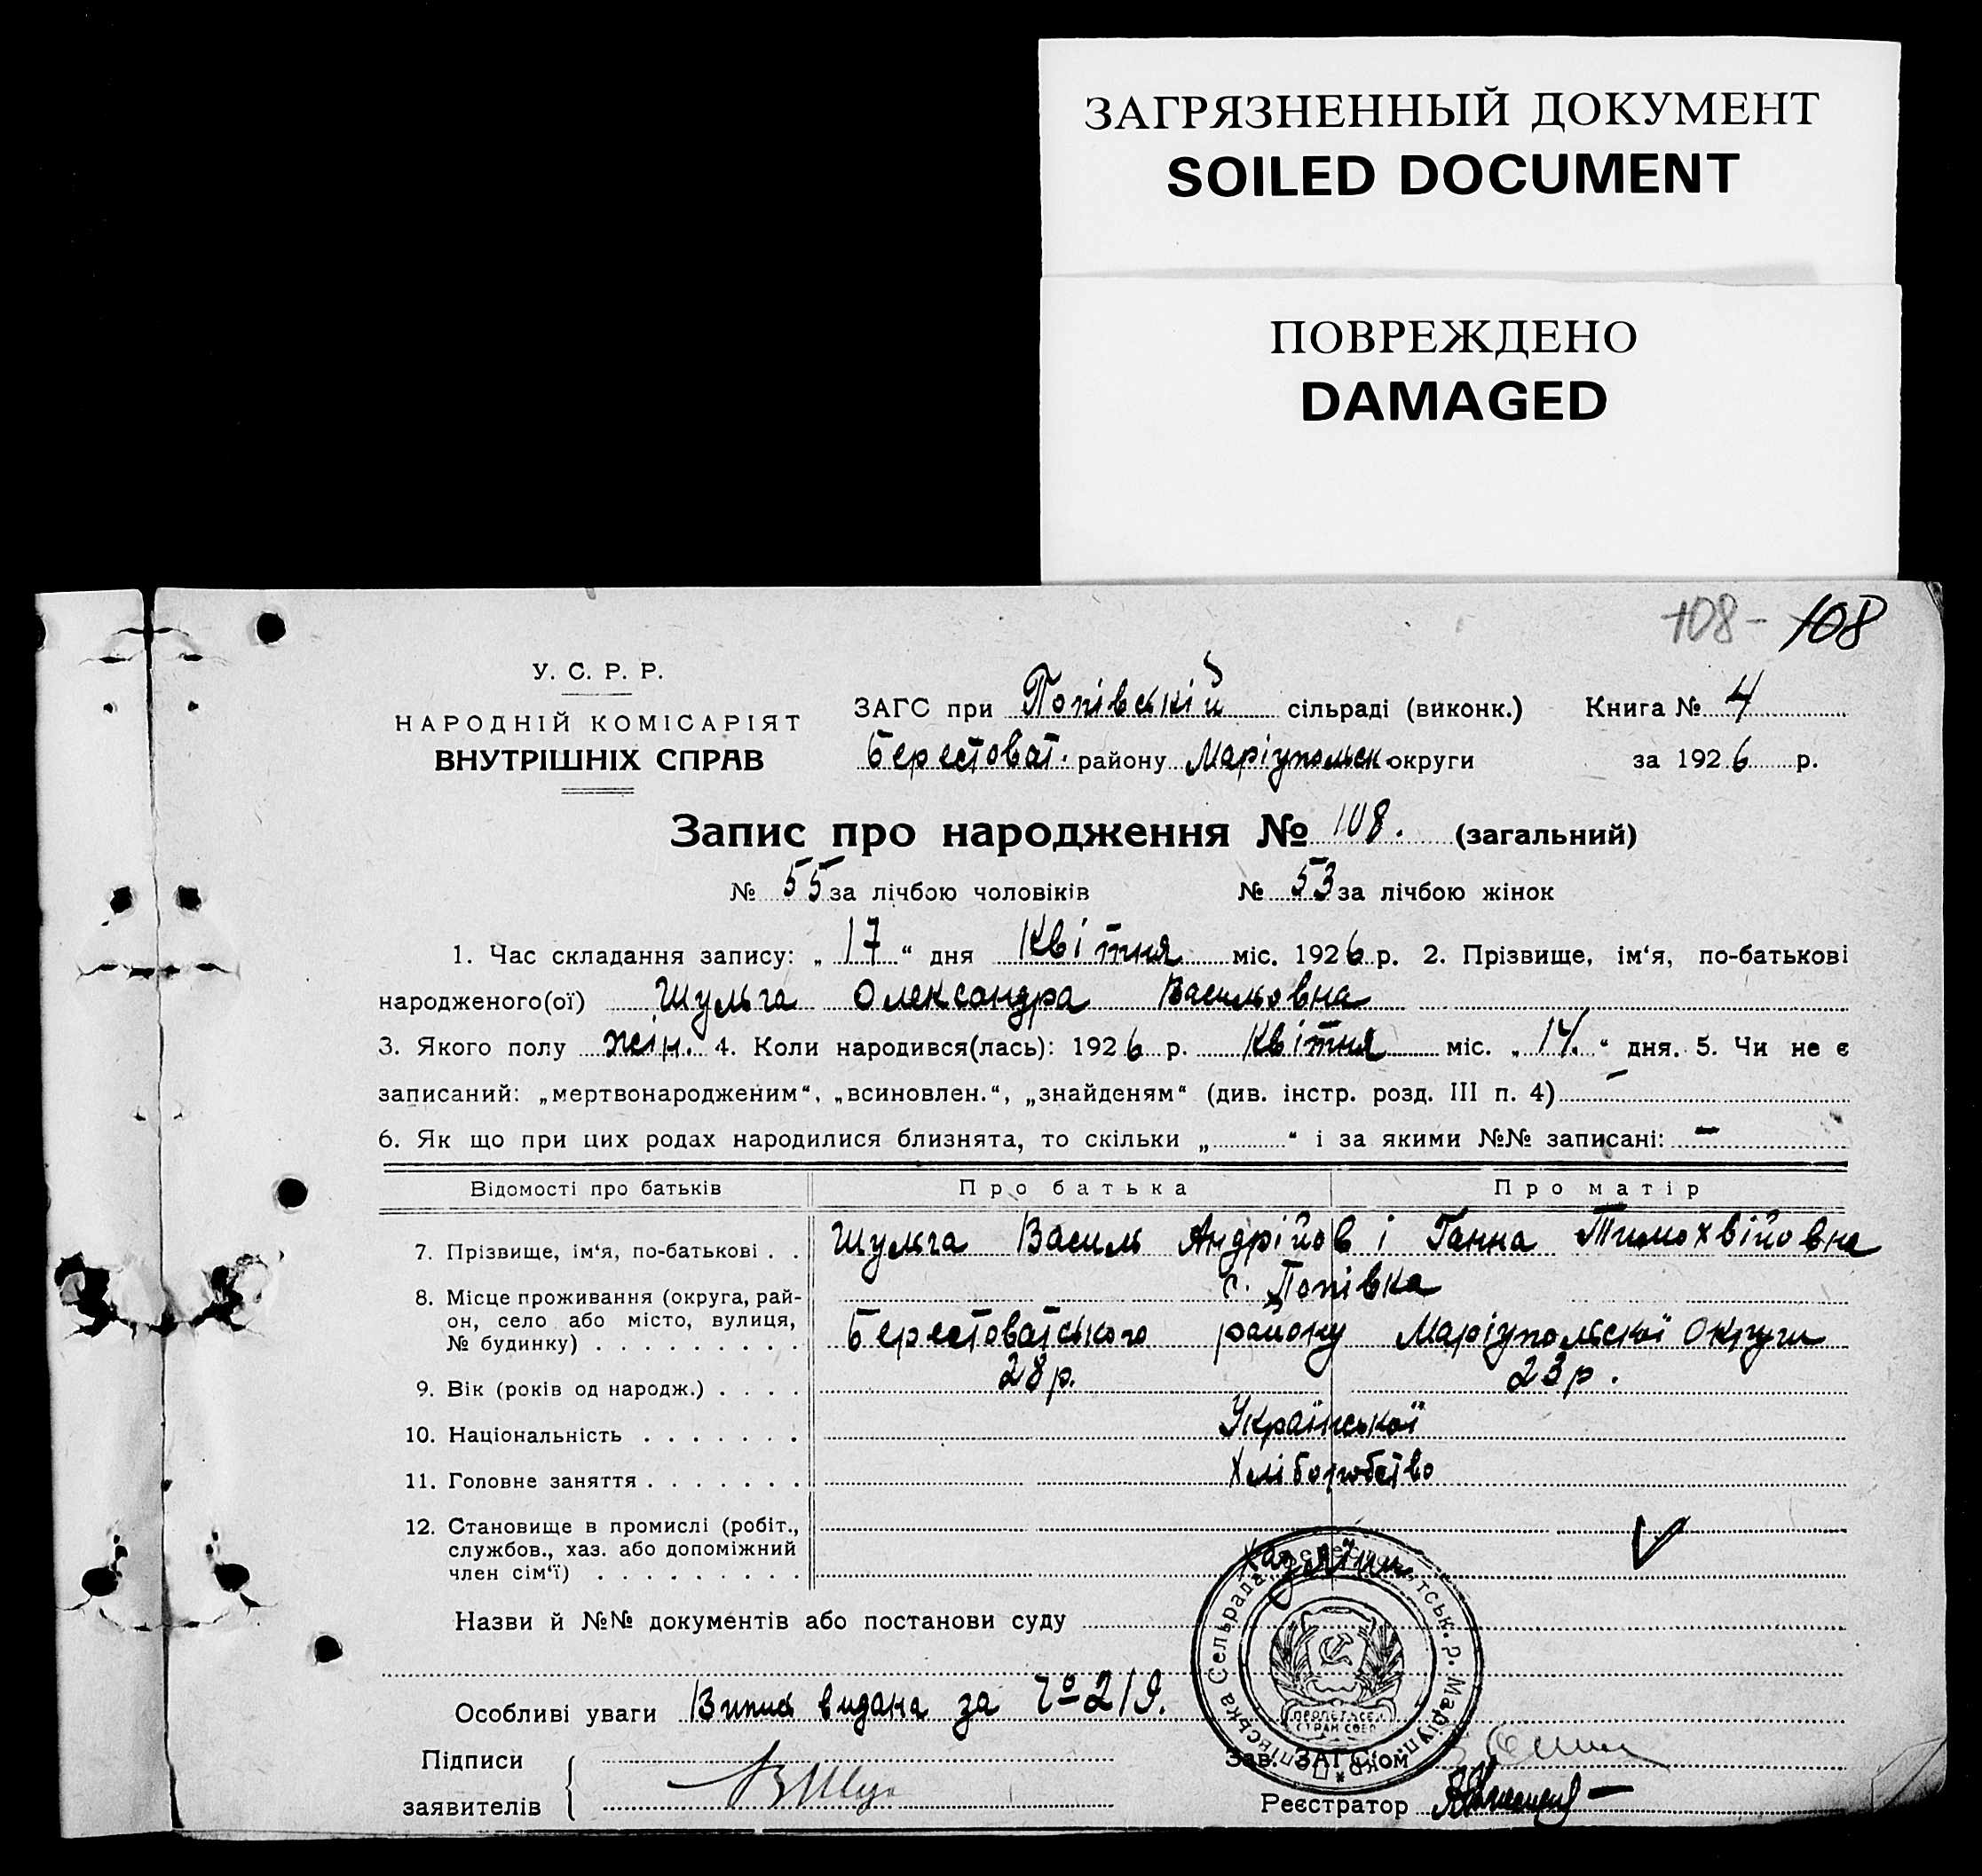 ЗАГРЯЗНЕННЫЙ ДОКУМЕНТ
SOILED DOCUMENT
ПОВРЕЖДЕНО
DAMAGED
108- 108
У. С. Р. Р.
НАРОДНІЙ КОМІСАРІЯТ
ВНУТРІШНІХ СПРАВ
ЗАГС при Попівській сільраді (виконк.) Книга № 4
Берестоват. району Маріупольськ. округи за 1926 р.
Запис про народження № 108. (загальний)
№ 55 за лічбою чоловіків № 53 за лічбою жінок
1. Час складання запису: „17“ дня Квітня міс. 1926 р. 2. Прізвище, ім‘я, по-батькові
народженого(ої) Шульга Олександра Васильовна
3. Якого полу жін. 4. Коли народився(лась): 1926 р. Квітня міс. „14.“ дня. 5. Чи не є
записаний: „мертвонародженим“, „всиновлен.“, „знайденям“ (див. інстр. розд. III п. 4) –
6. Як що при цих родах народилися близнята, то скільки „ “ і за якими №№ записані: –
Відомості про батьків Про батька Про матір
7. Прізвище, ім‘я, по-батькові . . Шульга Василь Андрійов і Ганна Тимохвійовна
8. Місце проживання (округа, рай- с. Попівка
он, село або місто, вулиця,
№ будинку) . . . . . . . . . Берестоватського району Маріупольської округи
9. Вік (років од народж.) . . . . 28 р. 23 р.
10. Національність . . . . . . . Української
11. Головне заняття . . . . . . . Хліборобство
12. Становище в промислі (робіт.,
службов., хаз. або допоміжний
член сім‘ї) . . . . . . . . . Хазяїни
Назви й №№ документів або постанови суду
Особливі уваги Випис видана за № 219.
Попівська Сельрада тськ. р. Маріуп. окр.
ПРОЛЕТ.ВСЕХ
СТРАН СОЕД
Підписи
заявителів В Шуль
Зав. ЗАГС'ом
Реєстратор